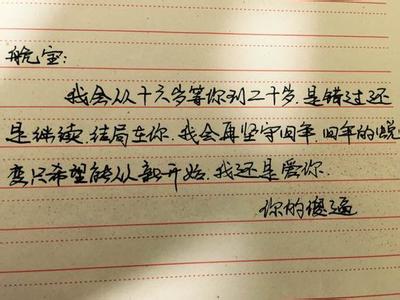 航宝:
我会从十六岁等你到二十岁.是错过还
是继续.结局在你.我会再坚守四年.四年的蜕
变只希望能从新开始.我还是爱你.
你的傻逼